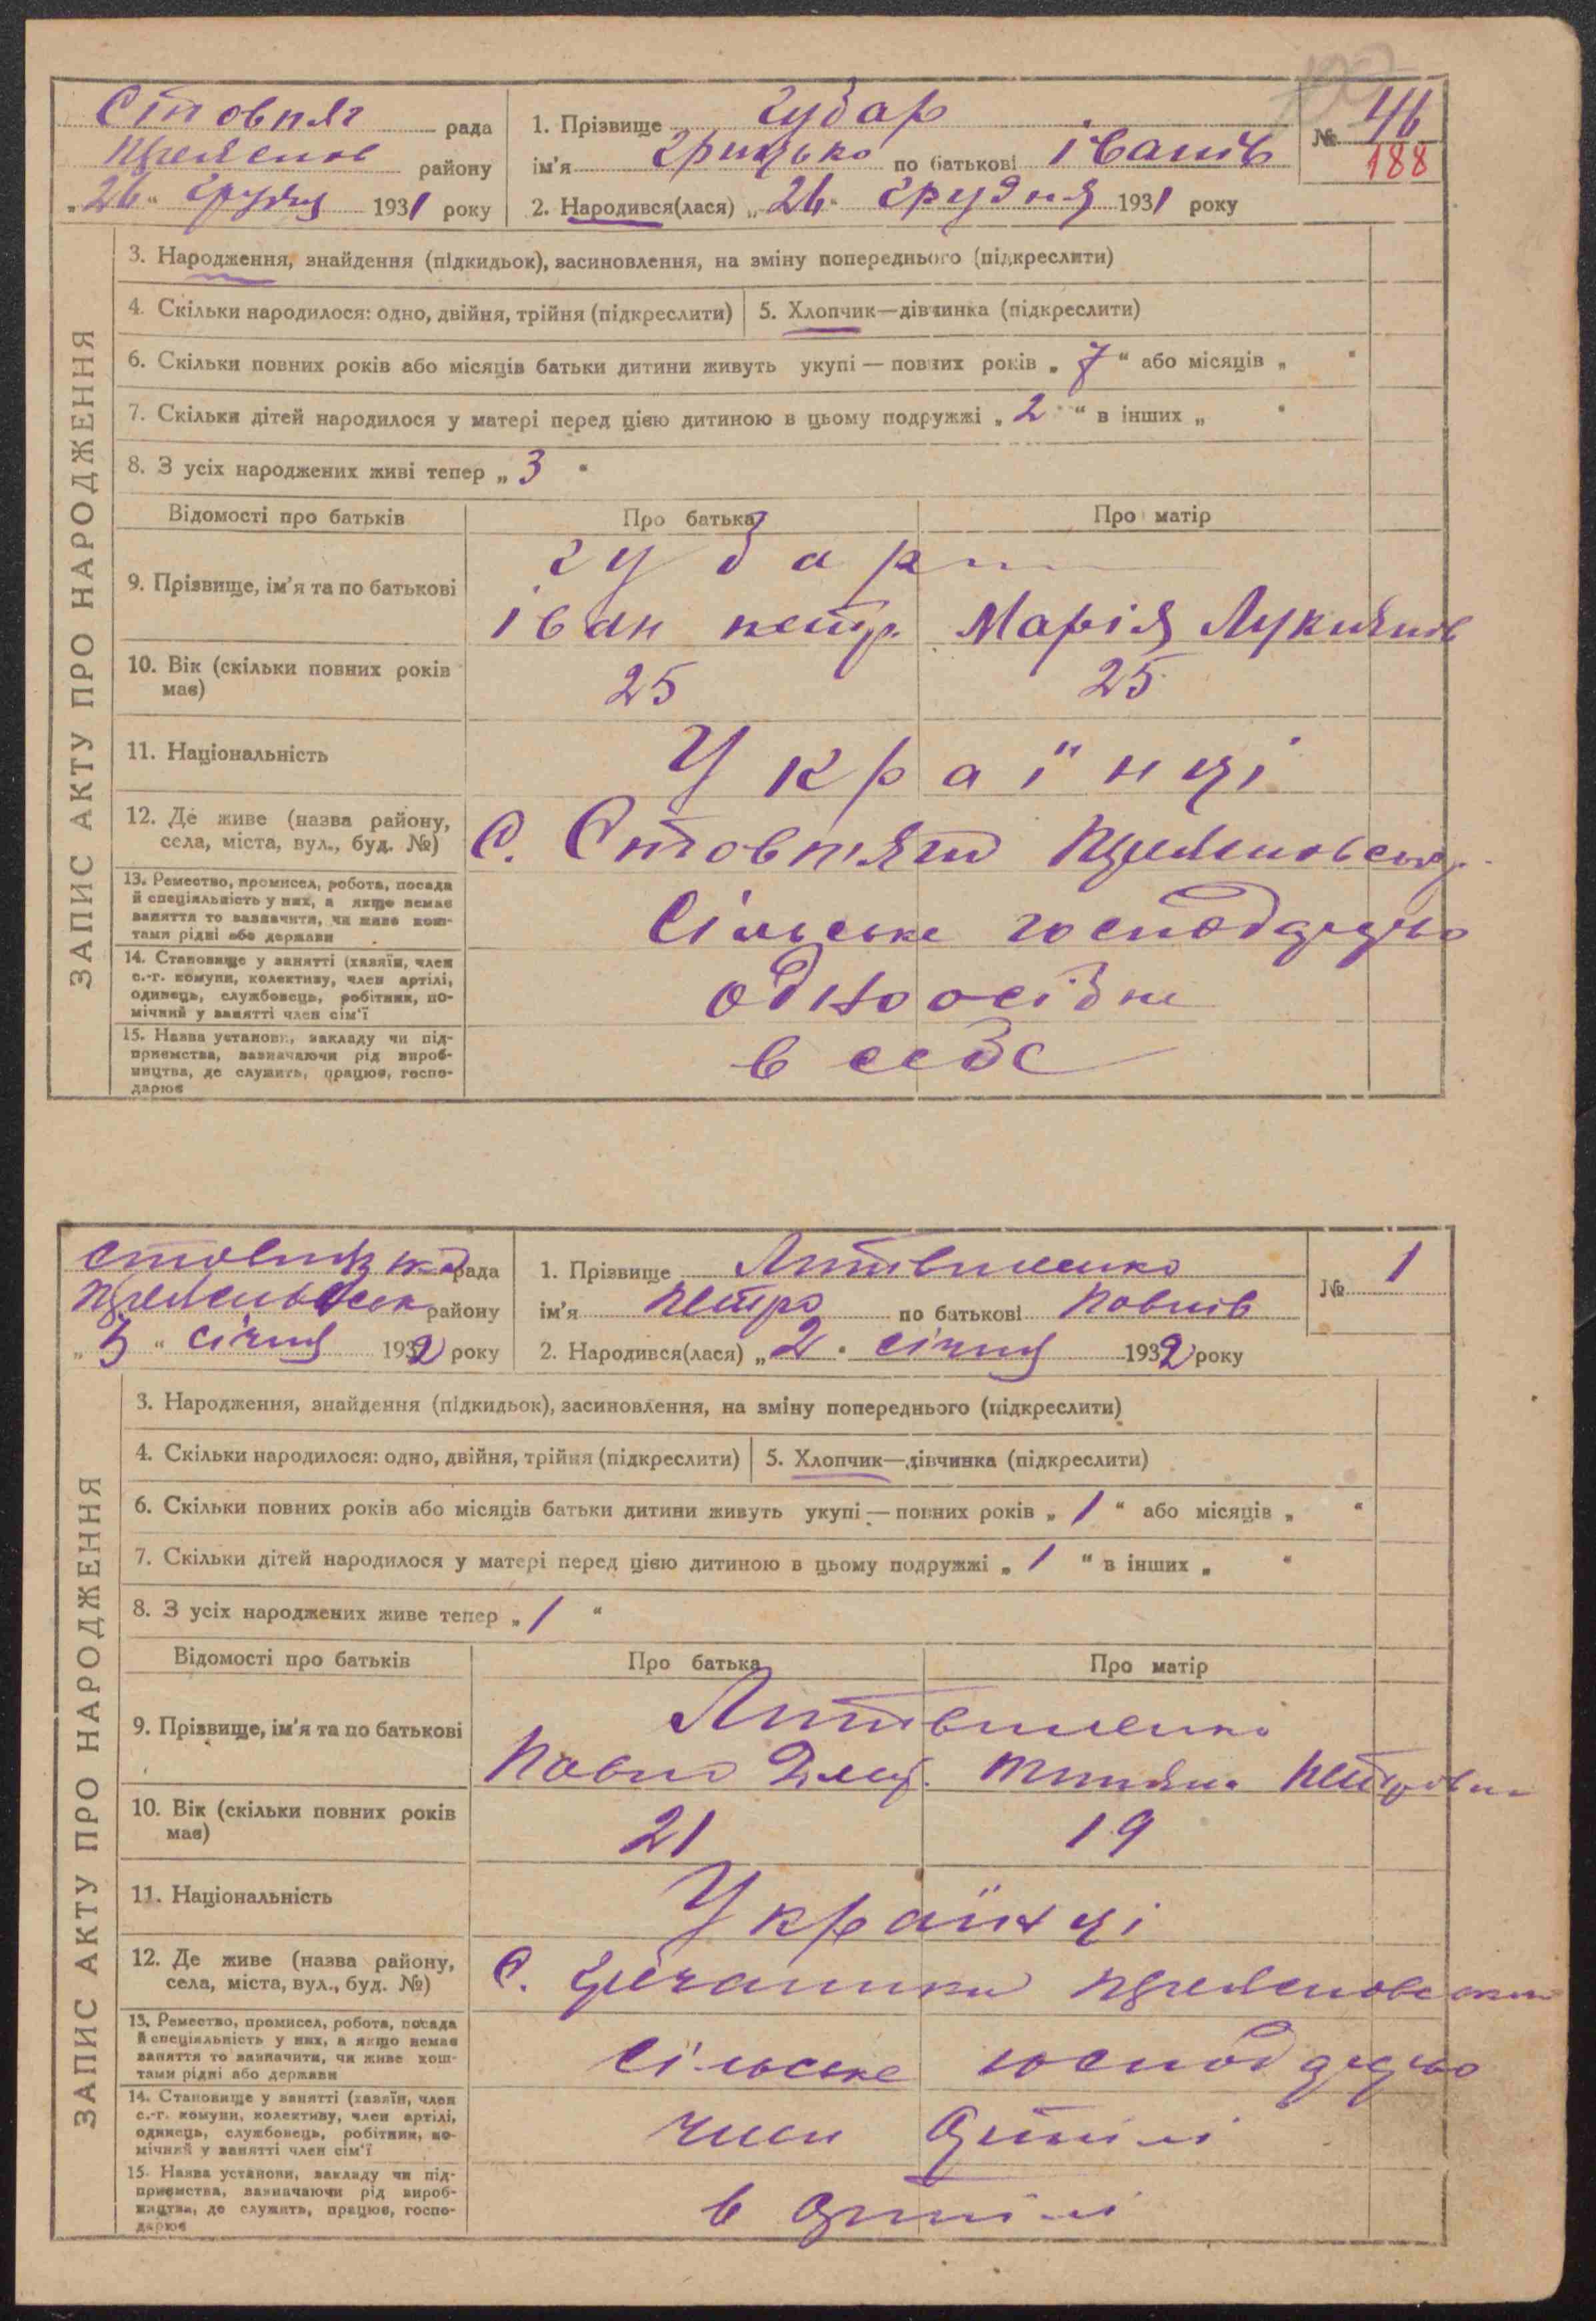 Стовпяг рада
району
„26“ грудня 1931 року
1. Прізвище Губар
ім'я Грицько по батькові Іванів
2. Народився(лася) „26“ грудня 1931 року
№ 46
188
ЗАПИС АКТУ ПРО НАРОДЖЕННЯ
3. Народження, знайдення (підкидьок), засиновлення, на зміну попереднього (підкреслити)
4. Скільки народилося: одно, двійня, трійня (підкреслити)
5. Хлопчик—дівчинка (підкреслити)
6. Скільки повних років або місяців батьки дитини живуть укупі — повних років „7“ або місяців „ “
7. Скільки дітей народилося у матері перед цією дитиною в цьому подружжі „2“ в інших „ “
8. З усіх народжених живі тепер „3“
Відомості про батьків Про батька Про матір
9. Прізвище, ім'я та по батькові
Губар
Іван петр. Марія Лукиянів
10. Вік (скільки повних років
має)
25 25
11. Національність Українці
12. Де живе (назва району,
села, міста, вул., буд. №)
С. Стовпяги
13. Ремество, промисел, робота, посада
й спеціяльність у них, а якщо немає
заняття то зазначити, чи живе кош-
тами рідні або держави
Сільське господарство
14. Становище у занятті (хазяїн, член
с.-г. комуни, колективу, член артілі,
одинець, службовець, робітник, по-
мічний у занятті член сім'ї
одноосібне
15. Назва установи, закладу чи під-
приємства, зазначаючи рід вироб-
ництва, де служить, працює, госпо-
дарює
в себе
рада
району
„3“ січня 1932 року
1. Прізвище Литвиненко
ім'я Петро по батькові Павлів
2. Народився(лася) „2“ січня 1932 року
№ 1
ЗАПИС АКТУ ПРО НАРОДЖЕННЯ
3. Народження, знайдення (підкидьок), засиновлення, на зміну попереднього (підкреслити)
4. Скільки народилося: одно, двійня, трійня (підкреслити)
5. Хлопчик—дівчинка (підкреслити)
6. Скільки повних років або місяців батьки дитини живуть укупі — повних років „1“ або місяців „ “
7. Скільки дітей народилося у матері перед цією дитиною в цьому подружжі „1“ в інших „ “
8. З усіх народжених живе тепер „1“
Відомості про батьків Про батька Про матір
9. Прізвище, ім'я та по батькові
Литвиненко
Павло Дмит. Тетяна Петровна
10. Вік (скільки повних років
має)
21 19
11. Національність Українці
12. Де живе (назва району,
села, міста, вул., буд. №)
С.
13. Ремество, промисел, робота, посада
й спеціяльність у них, а якщо немає
заняття то зазначити, чи живе кош-
тами рідні або держави
Сільське господарство
14. Становище у занятті (хазяїн, член
с.-г. комуни, колективу, член артілі,
одинець, службовець, робітник, по-
мічний у занятті член сім'ї
член артілі
15. Назва установи, закладу чи під-
приємства, зазначаючи рід вироб-
ництва, де служить, працює, госпо-
дарює
в артілі